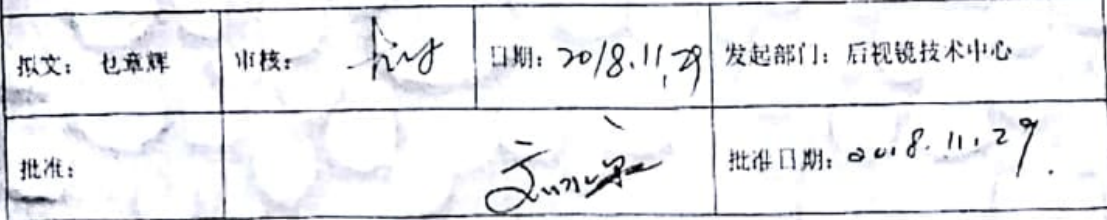 拟文：包章辉 审核： 日期：2018.11.29 发起部门：后视镜技术中心
批准： 批准日期：2018.11.29